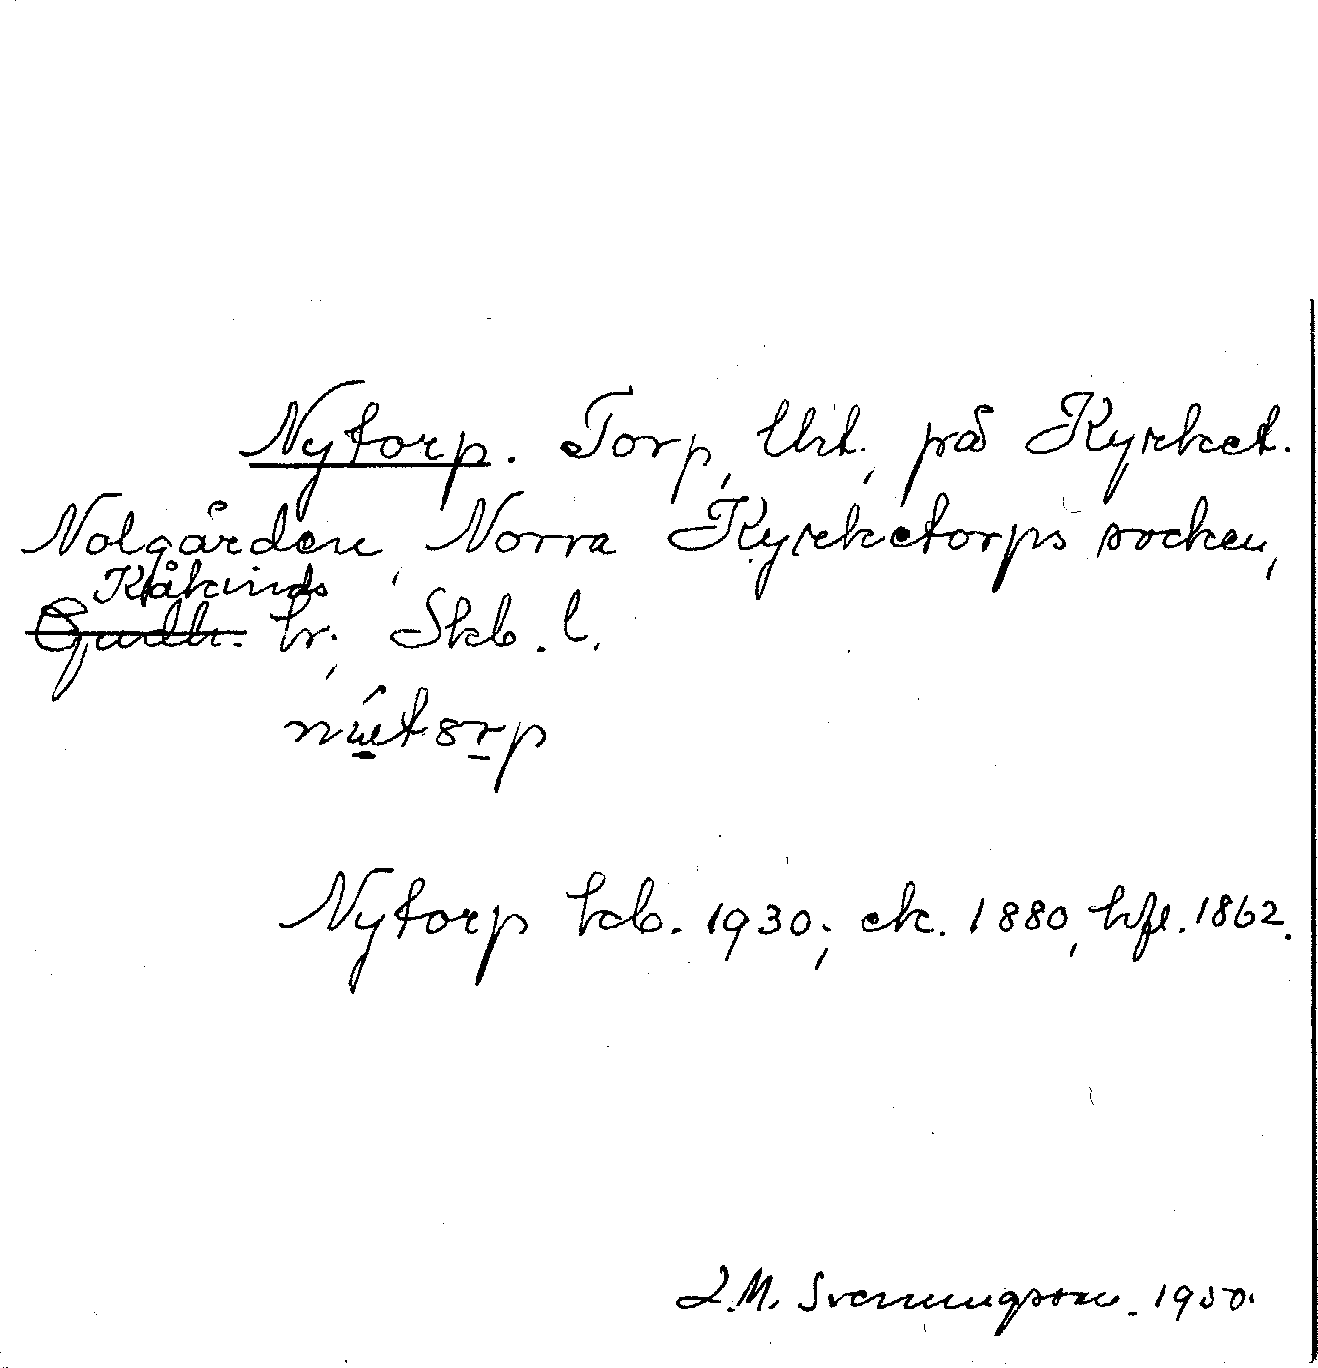 Nytorp. Torp, Urt., på Kyrket.
Nolgården, Norra Kyrketorps socken,
Kåkinds
Gudh. hr., Skb. l.
Nytorp kb. 1930; ek. 1880, hfl. 1862.
L.M. Svenningsson 1950.